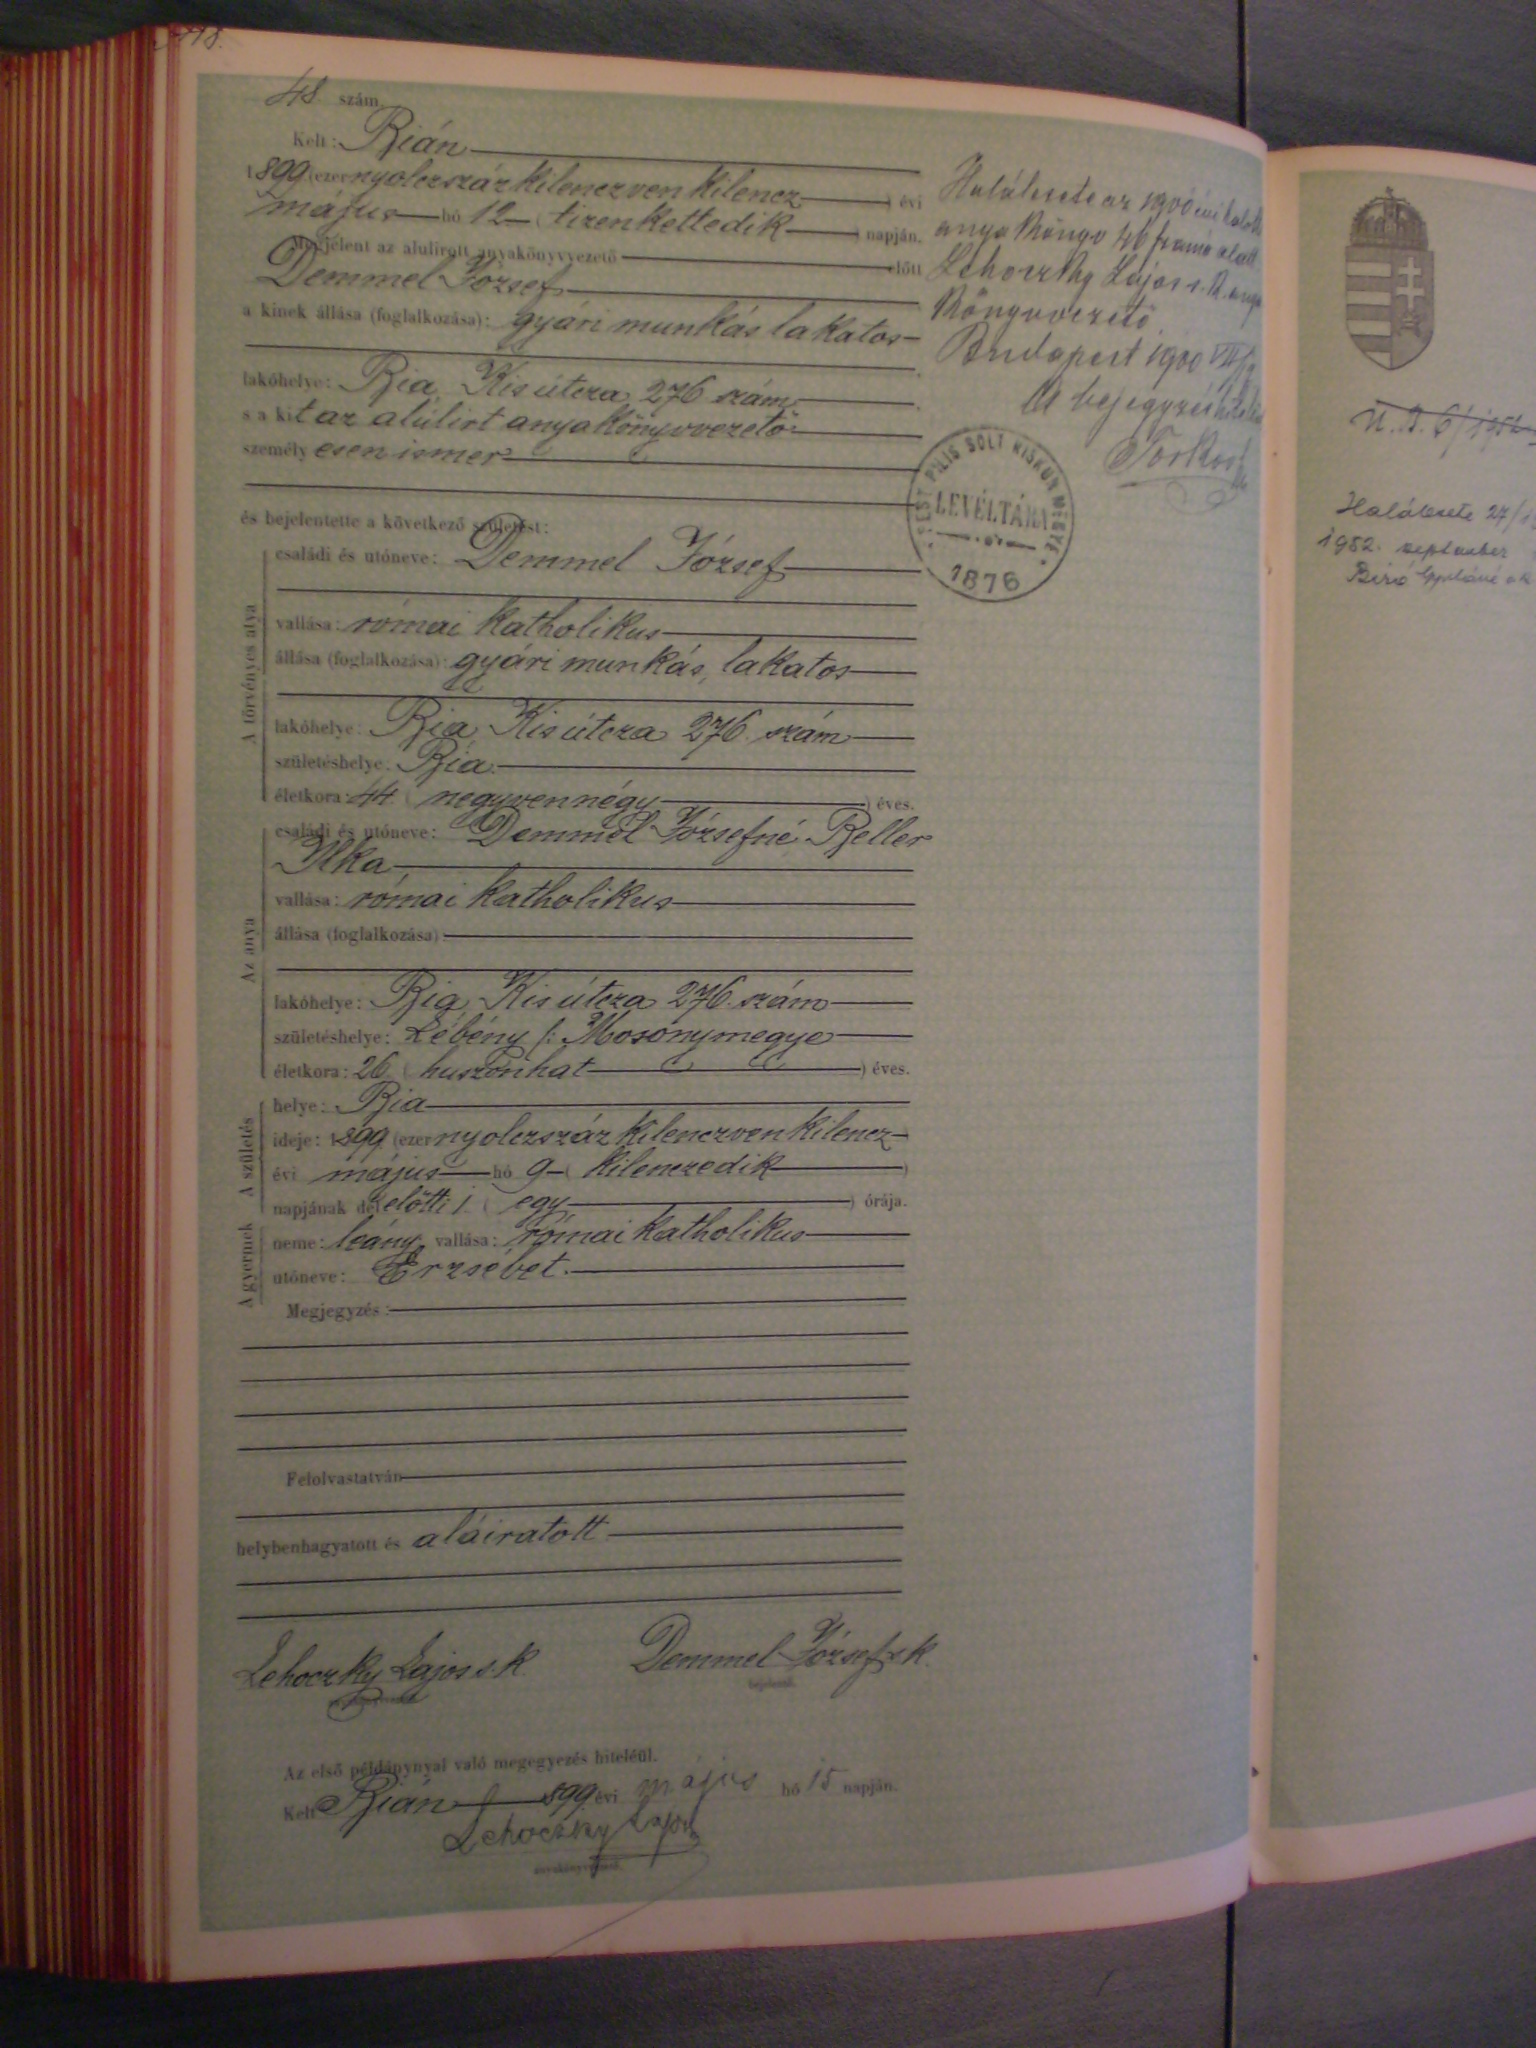 48 szám.
Kelt: Bián
1899 (ezernyolczszázkilenczvenkilencz) évi
május hó 12 (tizenkettedik) napján,
Megjelent az alulirott anyakönyvvezető előtt
Demmel József
a kinek állása (foglalkozása): gyári munkás lakatos
lakóhelye: Bia Kis útcza 276 szám
s a kit az alúlirt anyakönyvvezető
személyesen ismer
és bejelentette a következő születést:
A törvényes atya
családi és utóneve: Demmel József
vallása: római katholikus
állása (foglalkozása): gyári munkás, lakatos
lakóhelye: Bia Kis útcza 276. szám
születéshelye: Bia.
életkora: 44 (negyvennégy) éves.
Az anya
családi és utóneve: Demmel Józsefné Beller
Ilka
vallása: római katholikus
állása (foglalkozása):
lakóhelye: Bia Kis útcza 276. szám
születéshelye: Lébény /: Mosonymegye
életkora: 26 (huszonhat) éves.
A születés
helye: Bia
ideje: 1899 (ezernyolczszázkilenczvenkilencz
évi május hó 9 (kilenczedik)
napjának délelőtti 1 (egy) órája.
A gyermek
neme: leány, vallása: római katholikus
utóneve: Erzsébet.
Megjegyzés:
Felolvastatván
helybenhagyatott és aláiratott
Lehoczky Lajos s.k.
Demmel József s.k.
bejelentő.
Az első példánynyal való megegyezés hiteléül.
Kelt Bián 1899 évi május hó 15 napján.
Lehoczky Lajos
anyakönyvvezető.
Halálesete az 1900 évi halotti
anyakönyv 46 száma alatt
Lehoczky Lajos s.k. anya
könyvvezető
Budapest 1900 VII/
A bejegyzés hiteléül
PEST PILIS SOLT KISKUN MEGYE
LEVÉLTÁRA
1876
U. I. 6/1952
Halálesete 27/
1952. szeptember
Biró